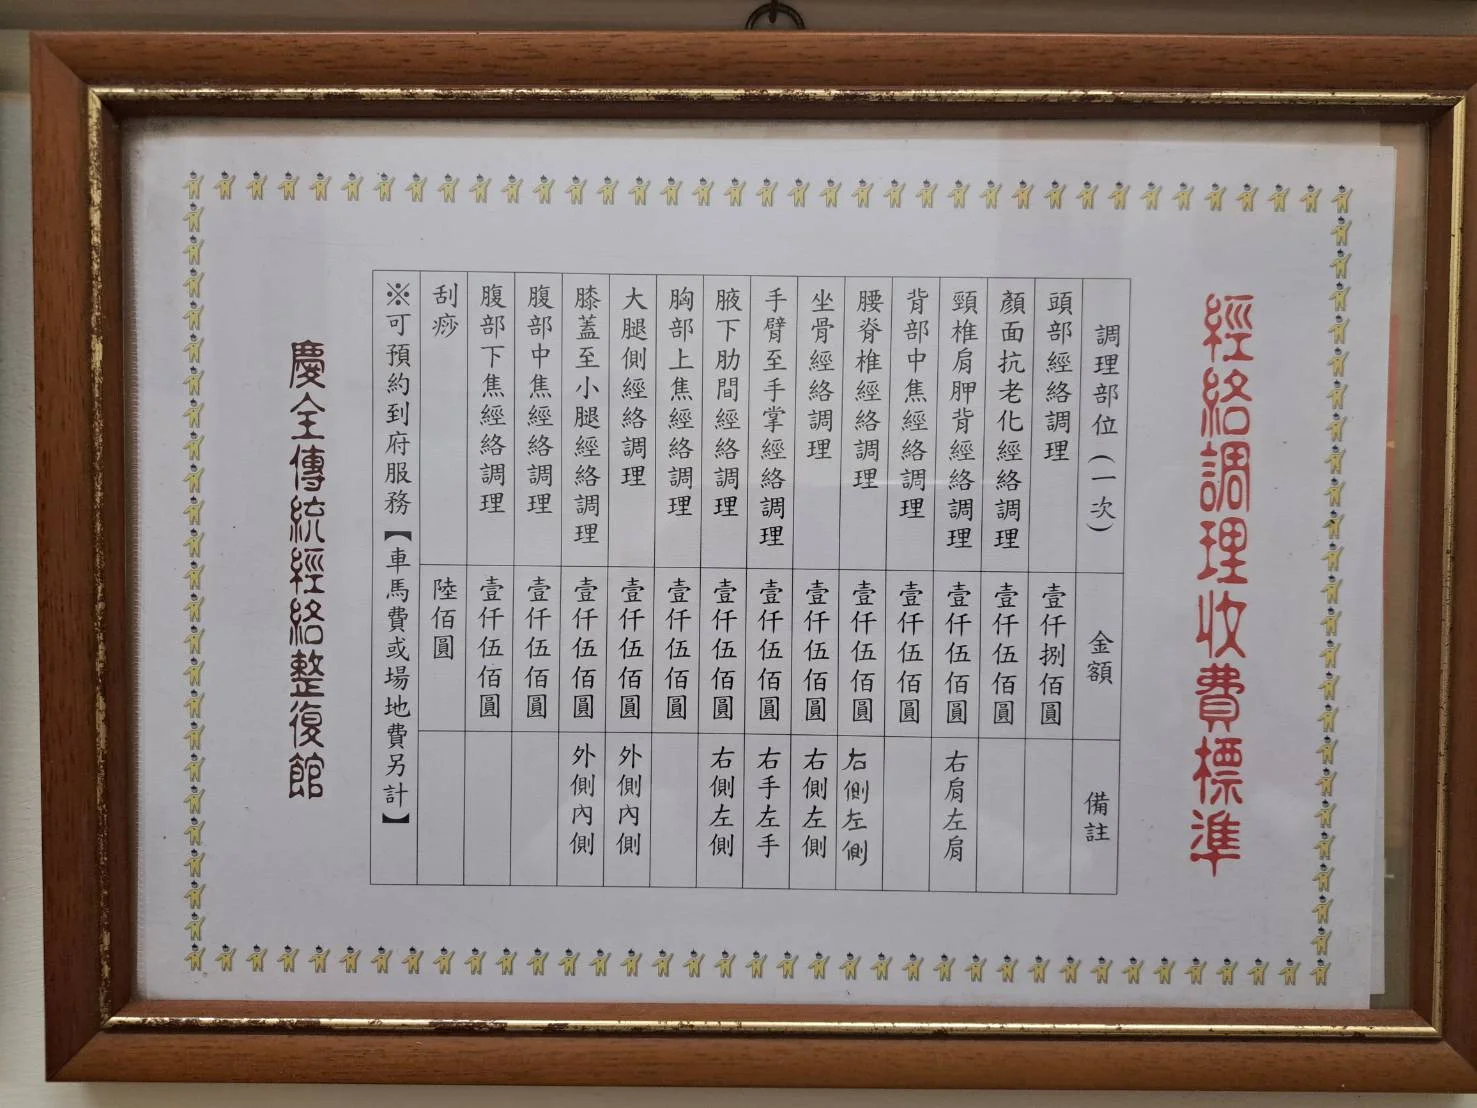 經絡調理收費標準
調理部位(一次) 金額 備註
頭部經絡調理 壹仟捌佰圓
顏面抗老化經絡調理 壹仟伍佰圓
頸椎肩胛背經絡調理 壹仟伍佰圓 右肩左肩
背部中焦經絡調理 壹仟伍佰圓
腰脊椎經絡調理 壹仟伍佰圓 右側左側
坐骨經絡調理 壹仟伍佰圓 右側左側
手臂至手掌經絡調理 壹仟伍佰圓 右手左手
腋下肋間經絡調理 壹仟伍佰圓 右側左側
胸部上焦經絡調理 壹仟伍佰圓
大腿側經絡調理 壹仟伍佰圓 外側內側
膝蓋至小腿經絡調理 壹仟伍佰圓 外側內側
腹部中焦經絡調理 壹仟伍佰圓
腹部下焦經絡調理 壹仟伍佰圓
刮痧 陸佰圓
※可預約到府服務【車馬費或場地費另計】
慶全傳統經絡整復館